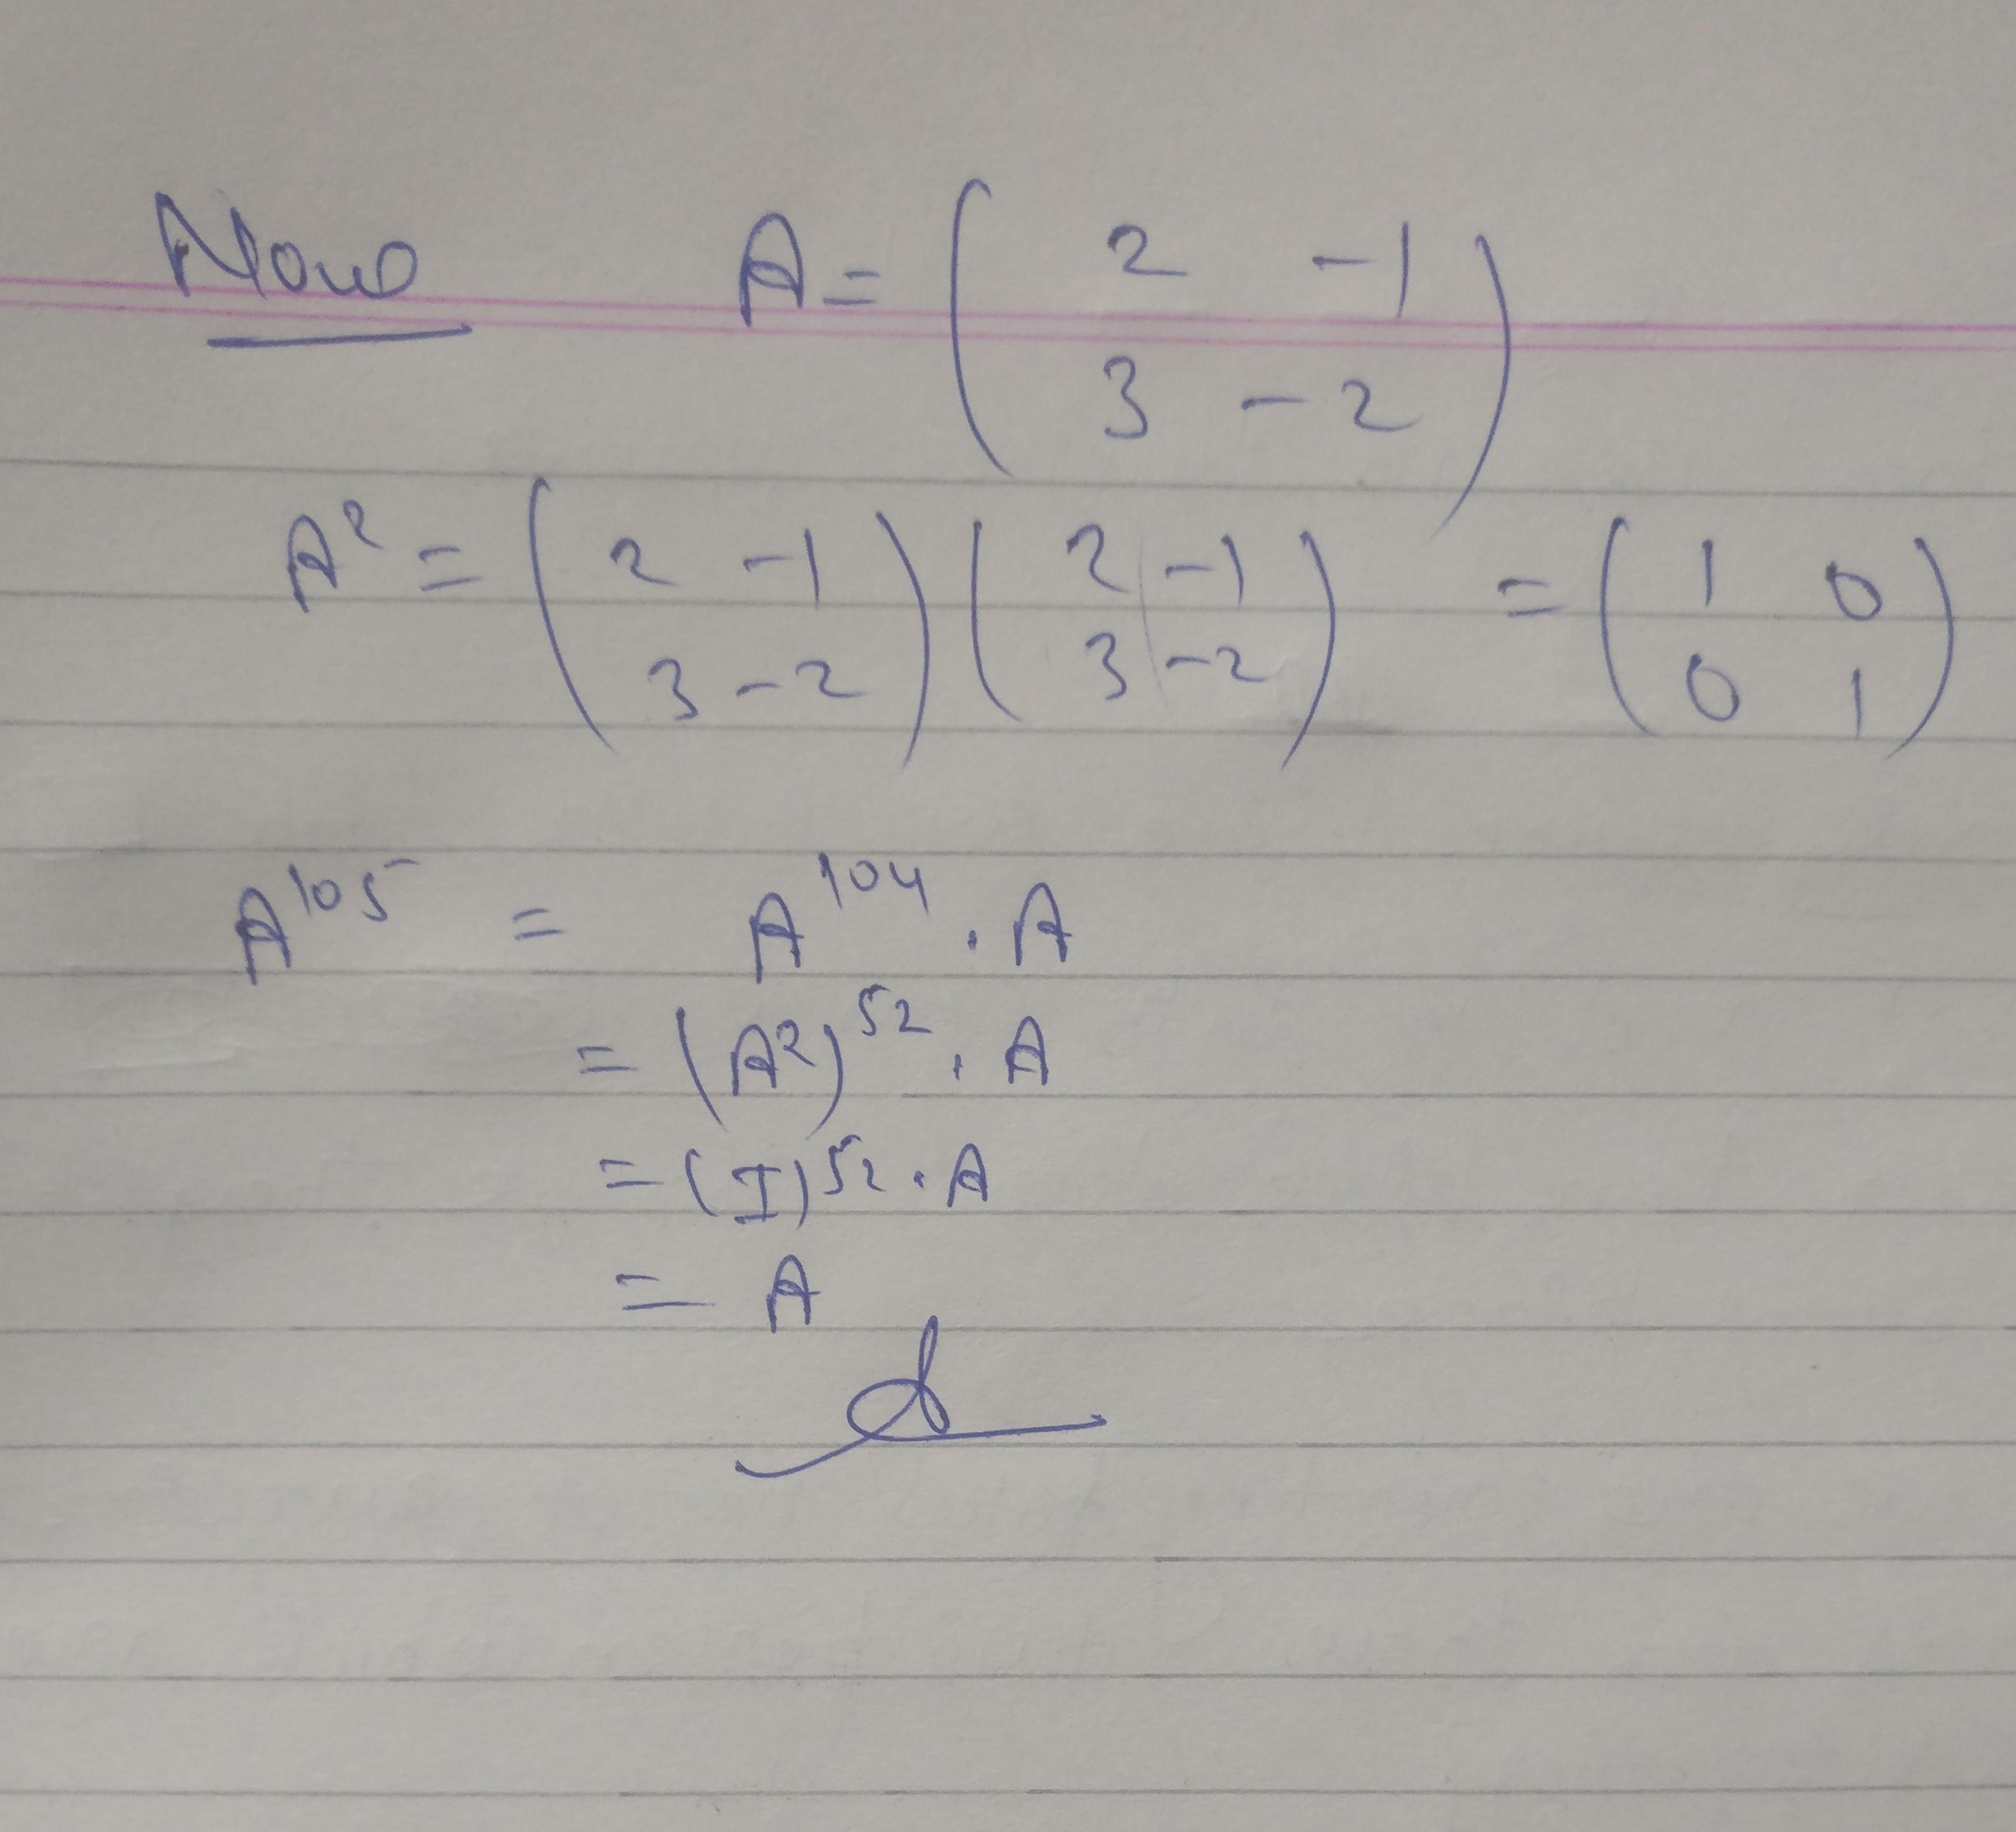 Now A = ( 2 -1
3 -2 )
A² = ( 2 -1
3 -2 ) ( 2 -1
3 -2 ) = ( 1 0
0 1 )
A¹⁰⁵ = A¹⁰⁴ . A
= (A²)⁵² . A
= (I)⁵² . A
= A